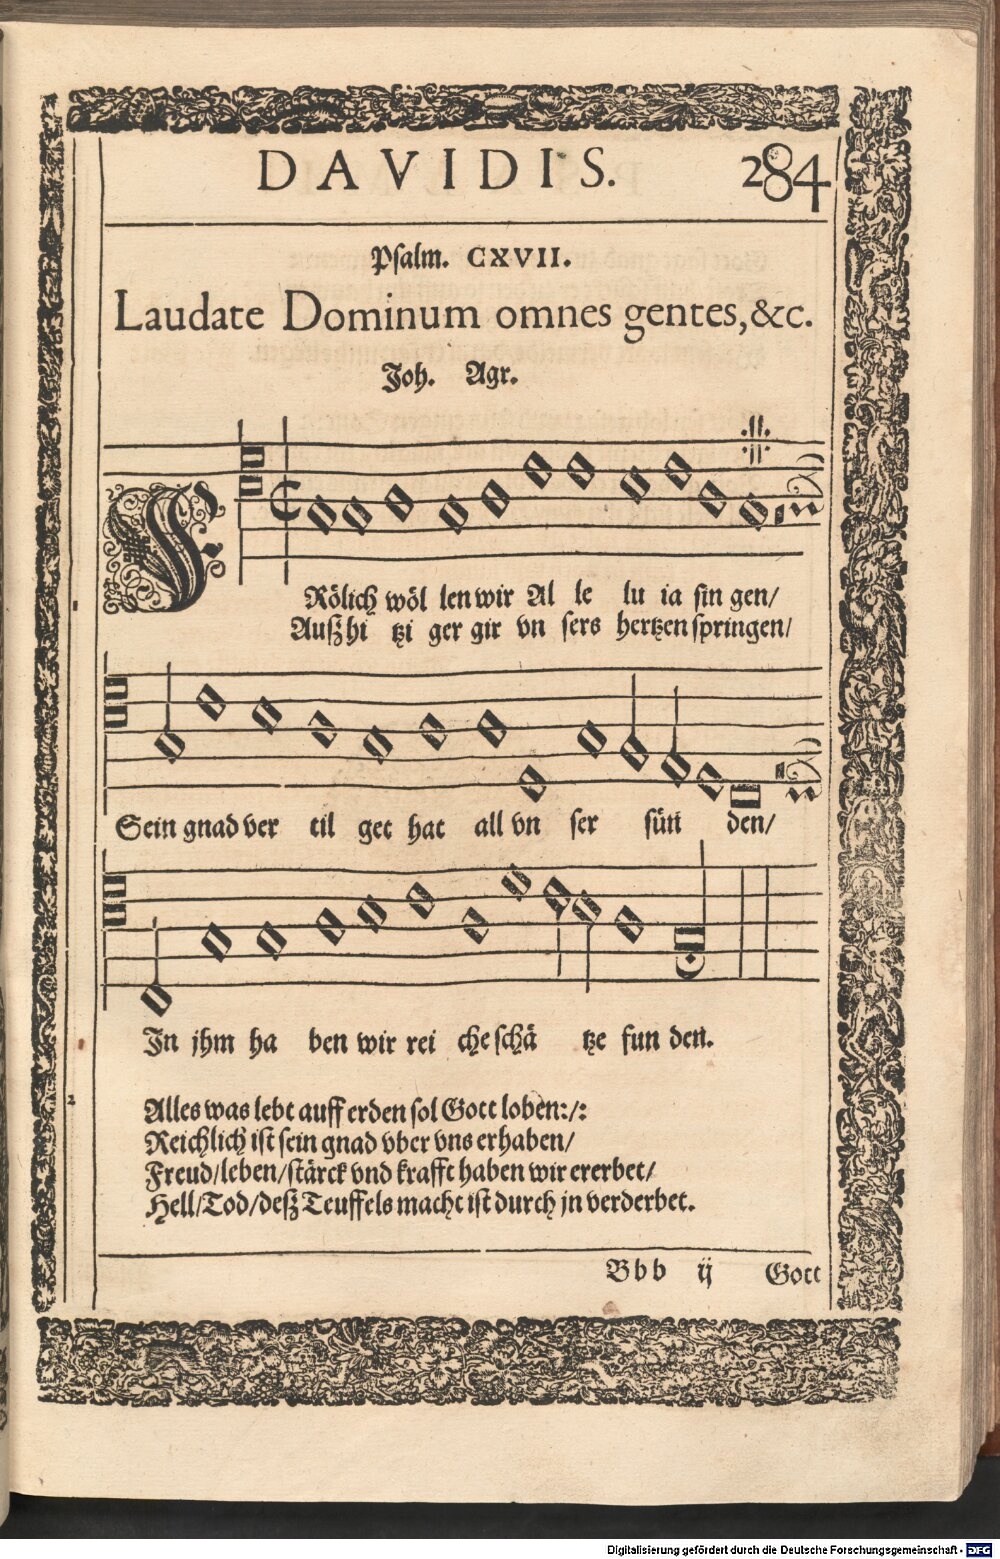 DAVIDIS. 284
Psalm. CXVII.
Laudate Dominum omnes gentes, &c.
Joh. Agr.
FRölich wöl len wir Al le lu ia sin gen/
Außhi tzi ger gir vn sers hertzen springen/
Sein gnad ver til get hat all vn ser sün den/
In jhm ha ben wir rei che schä tze fun den.
2 Alles was lebt auff erden sol Gott loben:/:
Reichlich ist sein gnad vber vns erhaben/
Freud/leben/stärck vnd krafft haben wir ererbet/
Hell/Tod/deß Teuffels macht ist durch jn verderbet.
Bbb ij Gott
Digitalisierung gefördert durch die Deutsche Forschungsgemeinschaft - DFG